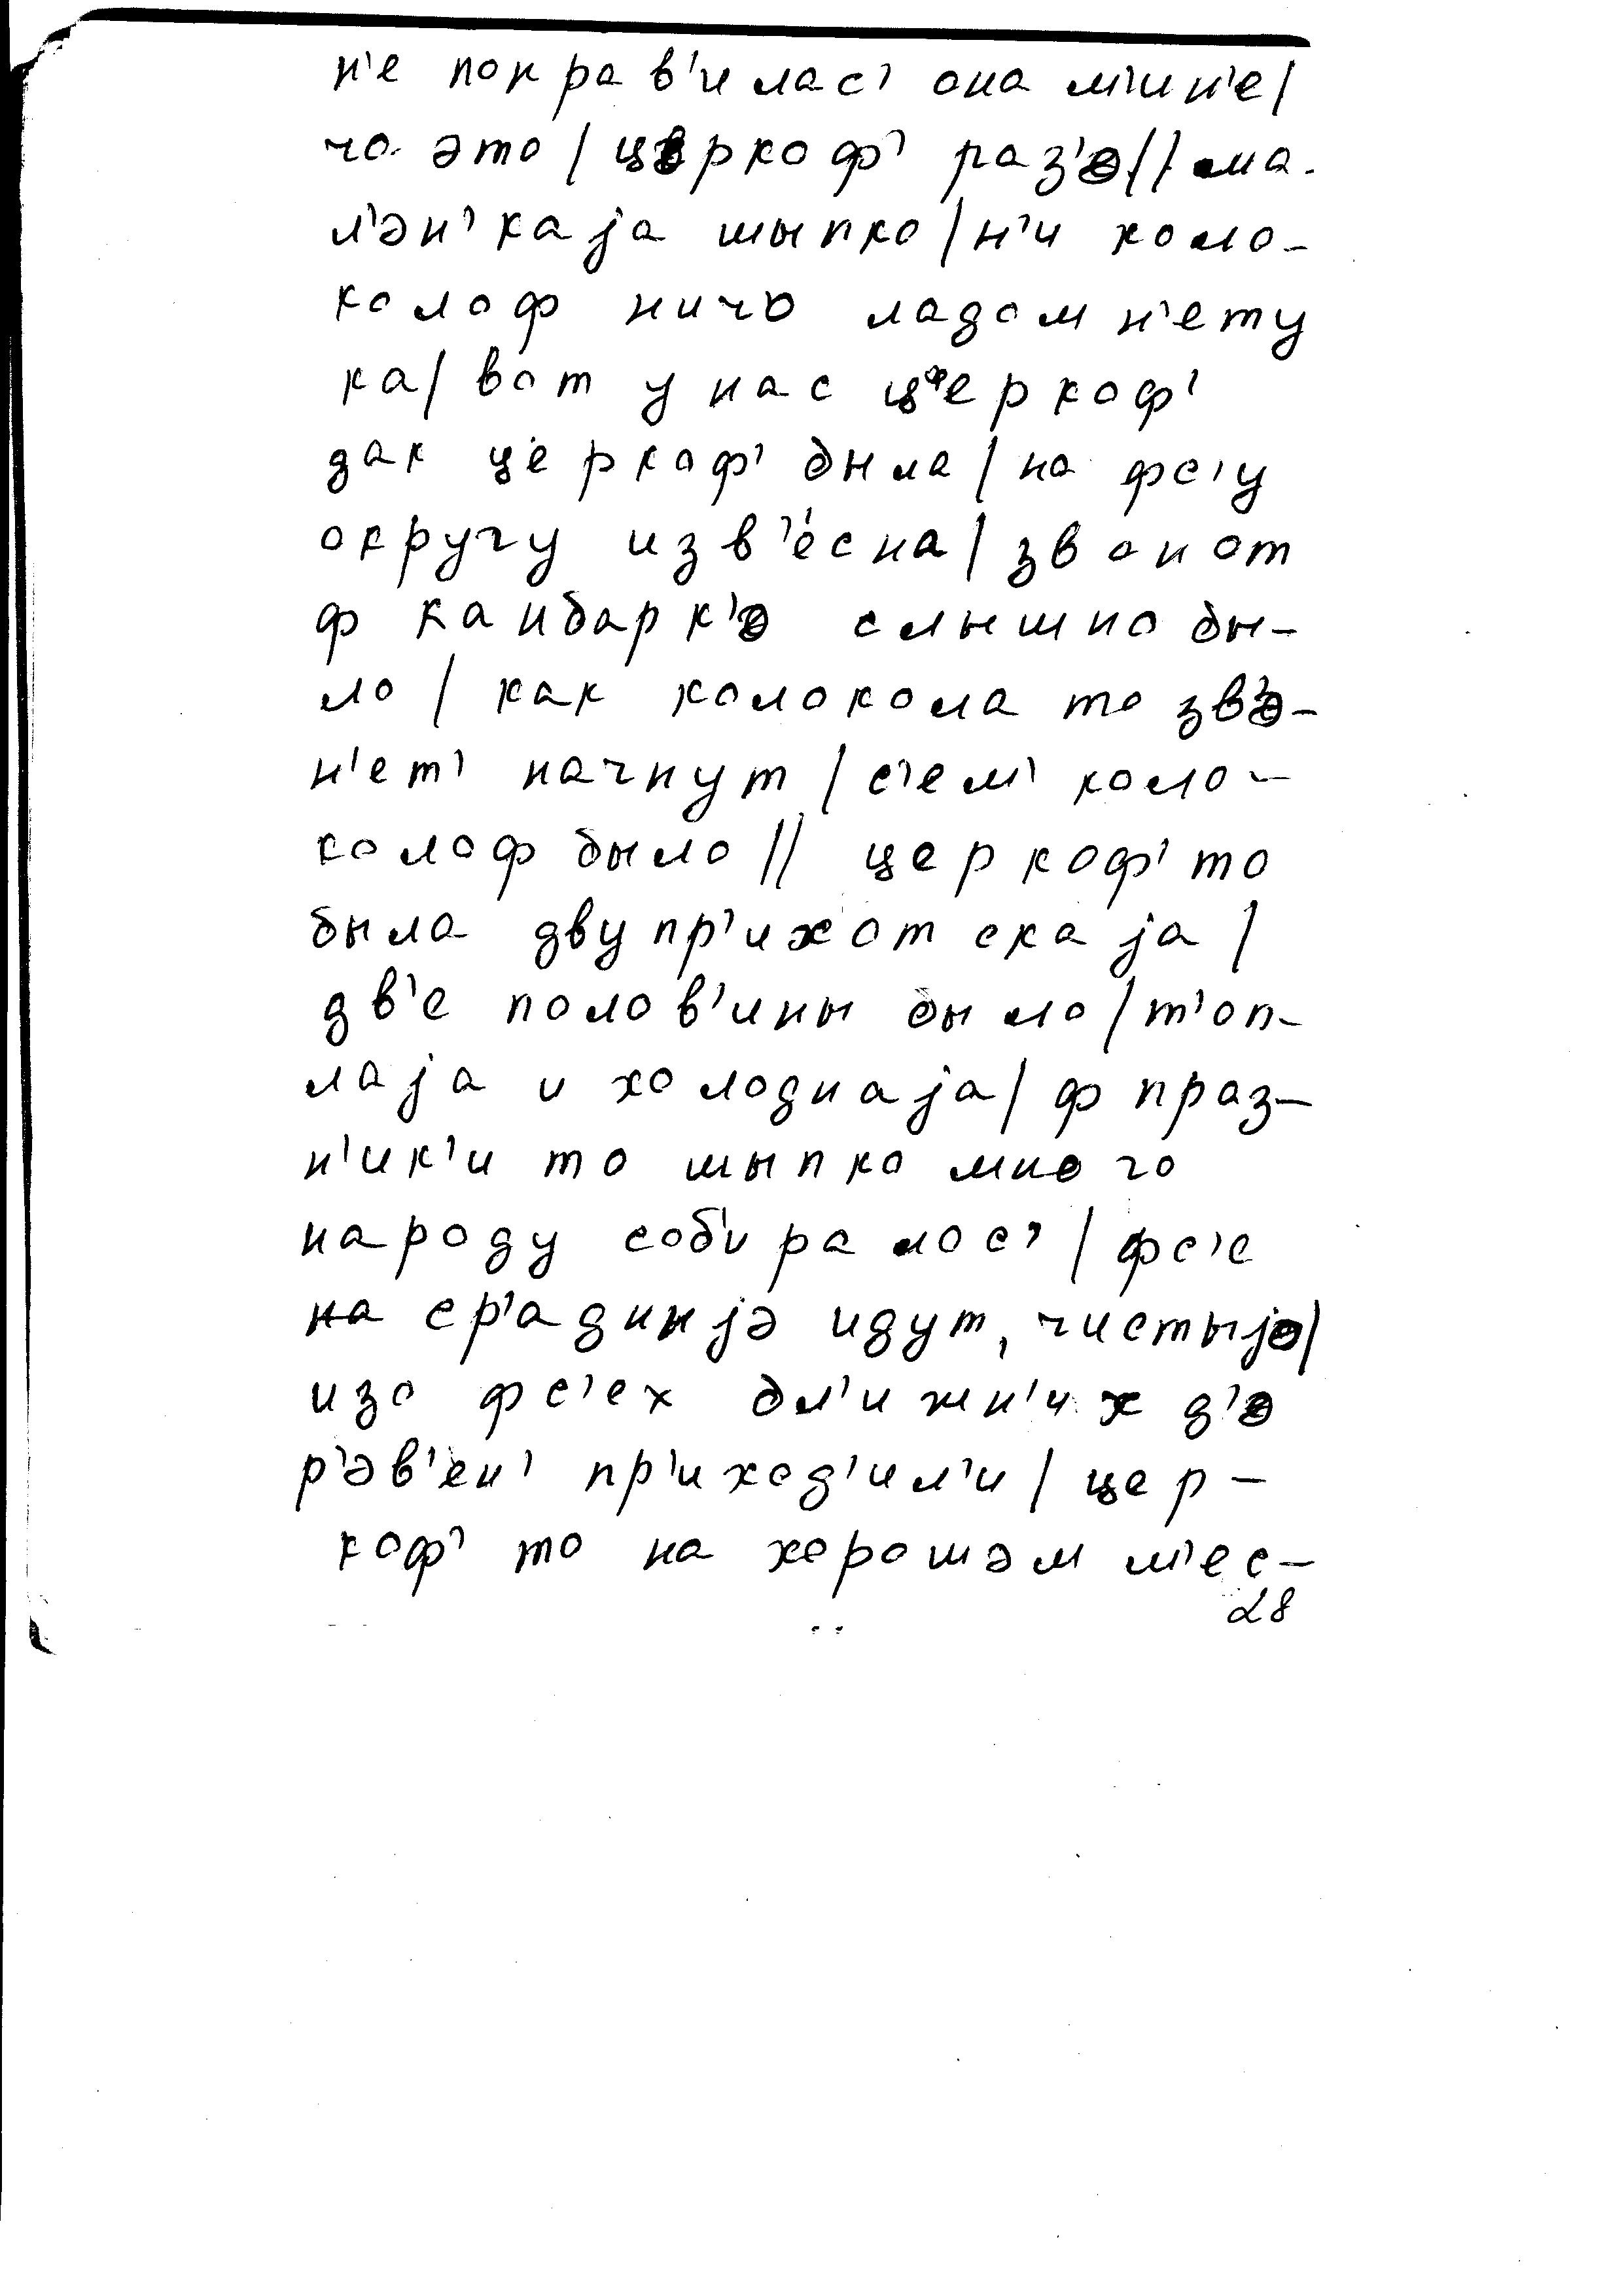 н'е понрав'илас' она м'ин'е/
чо это / цэркоф' раз'э // ма-
л'эн'каjа шыпко / н'и коло-
колоф ничо ладом н'ету
ка / вот у нас церкоф'
дак церкоф' была / на фс'у
округу изв'е́сна / звонот
ф камбарк'э слышно бы-
ло / как колокола то зв'э-
н'ет' начнут / с'ем' коло-
колоф было // церкоф' то
была двупр'ихотскаjа /
дв'е полов'ины было / т'оп-
лаjа и холоднаjа / ф праз-
н'ик'и то шыпко много
народу соб'иралос' / фс'е
на ср'адинjэ идут, чистыjэ /
изо фс'ех бл'ижн'их д'э
р'эв'ен' пр'иход'ил'и / цер-
коф' то на хорошэм м'ес-
28